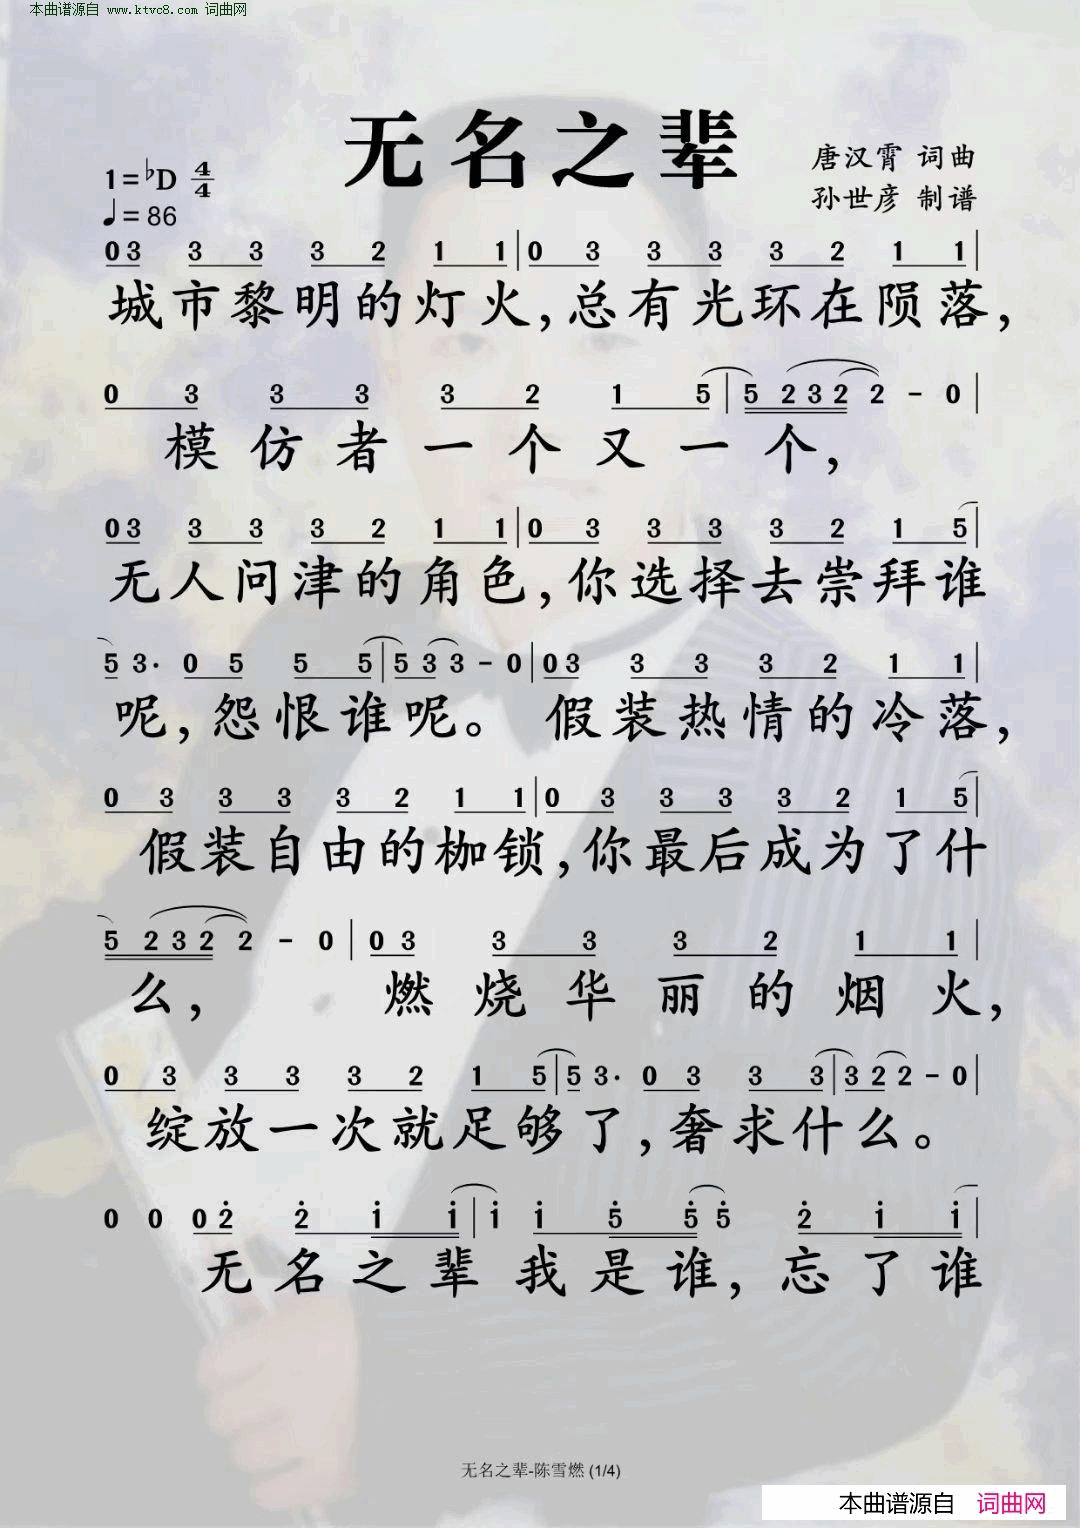 本曲谱源自 www.ktvc8.com 词曲网
无名之辈
1=♭D 4/4
♩=86
唐汉霄 词曲
孙世彦 制谱
03 3 3 3 2 1 1|0 3 3 3 3 2 1 1|
城市黎明的灯火,总有光环在陨落,
0 3 3 3 3 2 1 5|5 2 3 2 2 - 0|
模仿者一个又一个,
03 3 3 3 2 1 1|0 3 3 3 3 2 1 5|
无人问津的角色,你选择去崇拜谁
5 3· 0 5 5 5|5 3 3 - 0|03 3 3 3 2 1 1|
呢,怨恨谁呢。假装热情的冷落,
0 3 3 3 3 2 1 1|0 3 3 3 3 2 1 5|
假装自由的枷锁,你最后成为了什
5 2 3 2 2 - 0|03 3 3 3 2 1 1|
么,燃烧华丽的烟火,
0 3 3 3 3 2 1 5|5 3· 0 3 3 3|3 2 2 - 0|
绽放一次就足够了,奢求什么。
0 0 02̇ 2̇ 1̇ 1̇|1̇ 1̇ 5̇ 5̇ 5̇ 2̇ 1̇ 1̇|
无名之辈我是谁,忘了谁
无名之辈-陈雪燃 (1/4)
本曲谱源自 词曲网